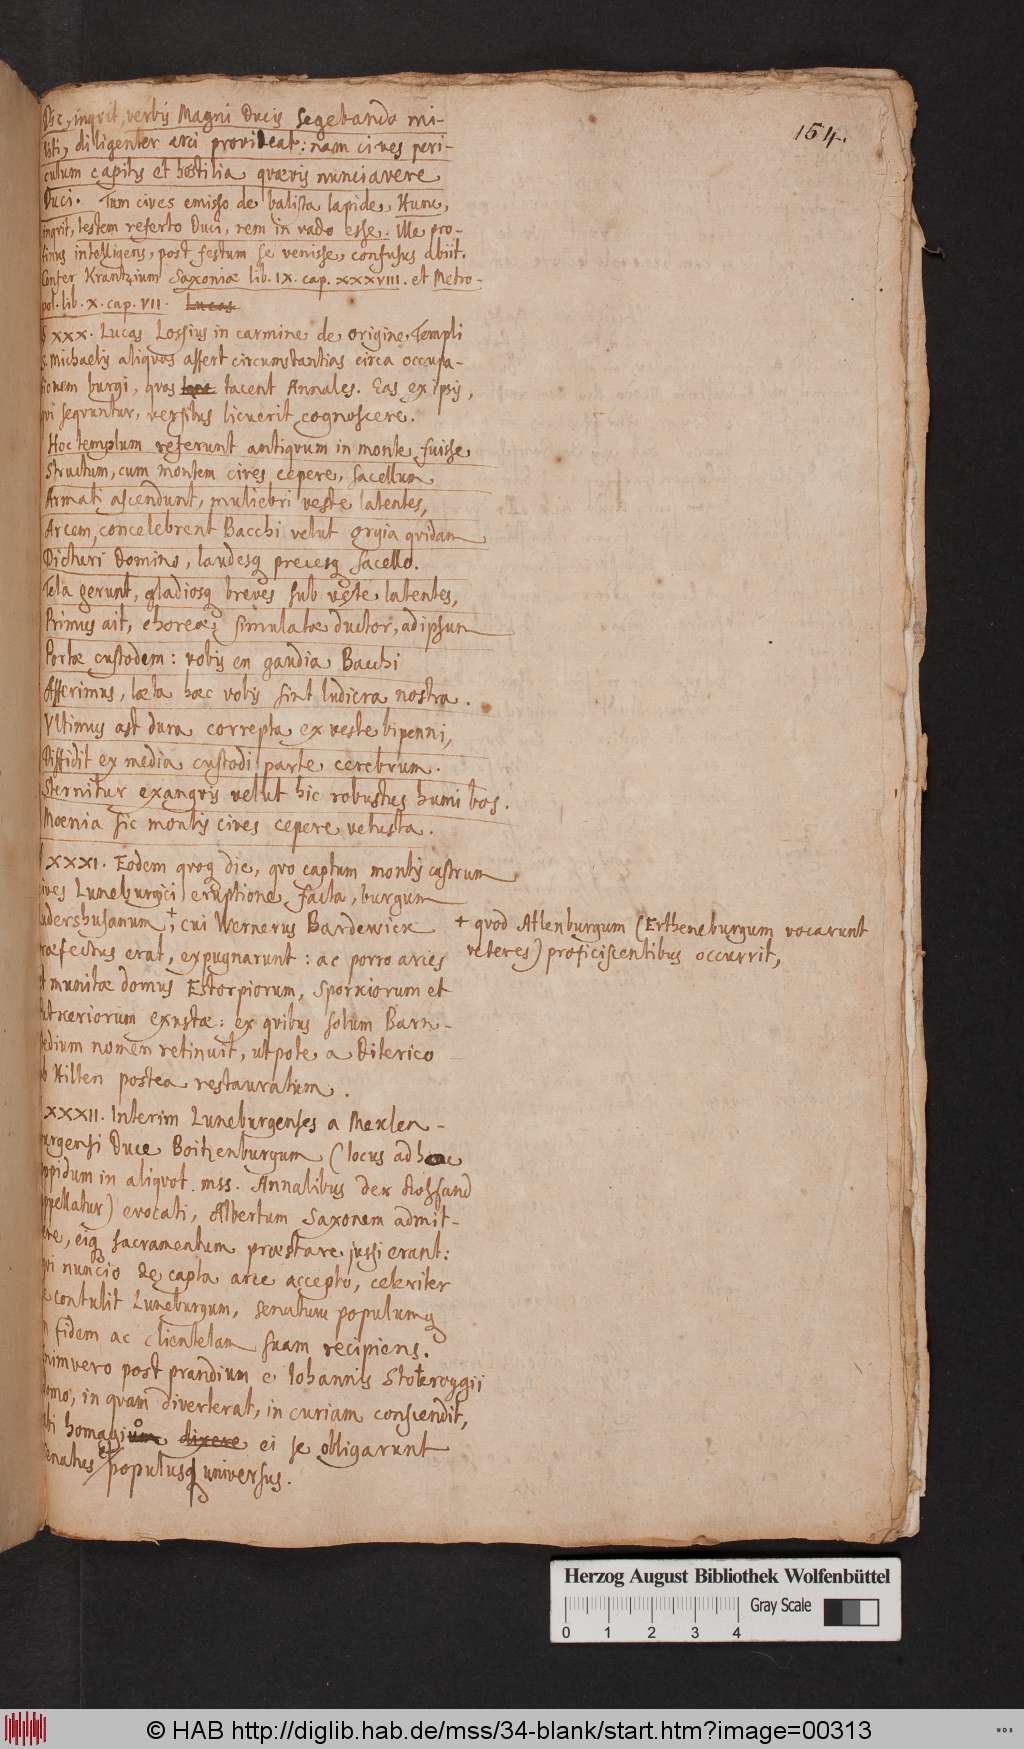 154.
Dic, inqvit, verbis Magni Ducis Segebando mi-
liti, diligenter arci provideat: nam cives peri-
culum capitis et hostilia qvævis nunciavere
Duci. Tum cives emisso de balista lapide, Hunc,
inqvit, testem referto Duci, rem in vado esse. Ille pro-
tinus intelligens, post festum se venisse, confusus abiit.
Confer Krantzium Saxoniæ lib. IX. cap. XXXVIII. et Metro-
pol. lib. X. cap. VII. Lucas
§ XXX. Lucas Lossius in carmine de origine Templi
S. Michaelis aliqvas affert circumstantias circa occupa-
tionem burgi, qvas tacent Annales. Eas ex ipsis,
qvi seqvuntur, versibus licuerit cognoscere.
Hoc templum referunt antiqvum in monte fuisse
Structum, cum montem cives cepere, sacellum
Armati ascendunt, muliebri veste latentes,
Arcem, concelebrent Bacchi velut orgia qvidam
Dicturi Domino, laudesq precesq sacello.
Tela gerunt, gladiosq breves sub veste latentes,
Primus ait, choreæ simulatæ ductor, ad ipsum
Portæ custodem: vobis en gaudia Bacchi
Afferimus, læta hæc vobis sint ludicra nostra.
Vltimus ast dura correpta ex veste bipenni,
Diffidit ex media custodi parte cerebrum.
Sternitur exangvis velut hic robustus humi bos.
Moenia sic montis cives cepere vetusta.
§ XXXI. Eodem qvoq die, qvo captum montis castrum
cives Luneburgici eruptione facta, burgum
Ludershusanum +, cui Wernerus Bardewick
+ qvod Atlenburgum (Ertheneburgum vocarunt
veteres) proficiscentibus occurrit,
præfectus erat, expugnarunt: ac porro arces
et munitæ domus Estorpiorum, Sporkiorum et
exustæ: ex qvibus solum Barn-
stedium nomen retinuit, utpote a Diterico
ab Hitten postea restauratum.
§ XXXII. Interim Luneburgenses a Meklen-
burgensi Duce Boitzenburgum (locus ad hunc
oppidum in aliqvot mss. Annalibus der
appellatur) evocati, Albertum Saxonem admit-
tere, eiq sacramentum præstare jussi erant:
qvi nuncio de capta arce accepto, celeriter
se contulit Luneburgum, senatum populumq
in fidem ac clientelam suam recipiens.
Enimvero post prandium e Iohannis Stoteroggii
domo, in qvam diverterat, in curiam conscendit,
ubi homagio dixere ei se obligarunt
Senatus et populusq universus.
Herzog August Bibliothek Wolfenbüttel
Gray Scale
0 1 2 3 4
© HAB http://diglib.hab.de/mss/34-blank/start.htm?image=00313